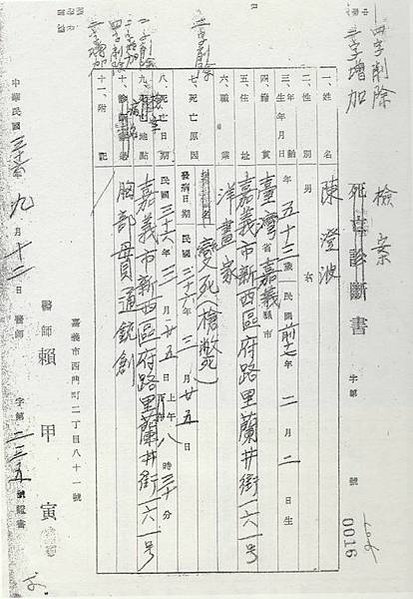 四字削除
三字增加
檢案
死亡診斷書 字第 號
0016
一、姓名 陳澄波
二、性別 男
三、年齡 生年月日 年五十三歲 民國前十七年二月二日生
四、籍貫 臺灣省嘉義縣市
五、住址 嘉義市新西區府路里蘭井街一六一号
六、職業 洋畫家
七、死亡原因 變死（槍斃）
發病日期 民國三十六年三月廿五日
八、死亡日期 民國三十六年三月廿五日上午八時三十分
九、死亡地點 嘉義市新西區府路里蘭井街一六一号
十、病名 胸部貫通銃創
十一、附記
中華民國 九月十二日
嘉義市西門町二丁目八十一號
醫師 賴甲寅
醫師 字第二三五號證書